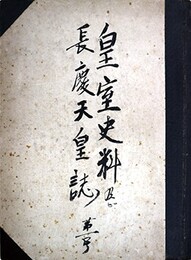 皇室史料
長慶天皇誌
第一号